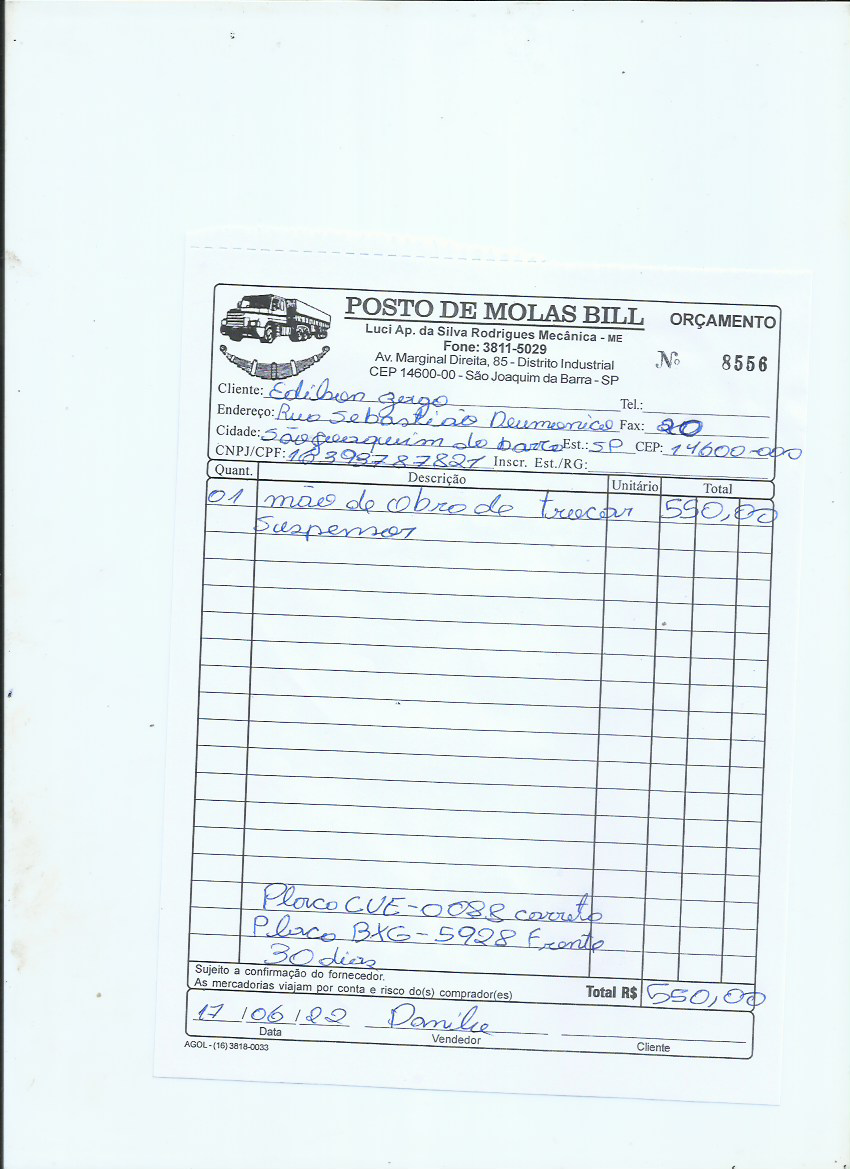 POSTO DE MOLAS BILL
ORÇAMENTO
Luci Ap. da Silva Rodrigues Mecânica - ME
Fone: 3811-5029
Av. Marginal Direita, 85 - Distrito Industrial
CEP 14600-00 - São Joaquim da Barra - SP
Nº 8556
Cliente: Edilson Tel.:
Endereço: Rua Sebastião Fax: 20
Cidade: São Joaquim da barra Est.: SP CEP: 14600-000
CNPJ/CPF: 16393787821 Inscr. Est./RG:
Quant. Descrição Unitário Total
01 mão de obra de trocar 550,00
suspensor
Placa CUE-0088 carreta
Placa BXG-5928 Frente
30 dias
Sujeito a confirmação do fornecedor.
As mercadorias viajam por conta e risco do(s) comprador(es)
Total R$ 550,00
17/06/22 Danilo
Data Vendedor Cliente
AGOL - (16) 3818-0033